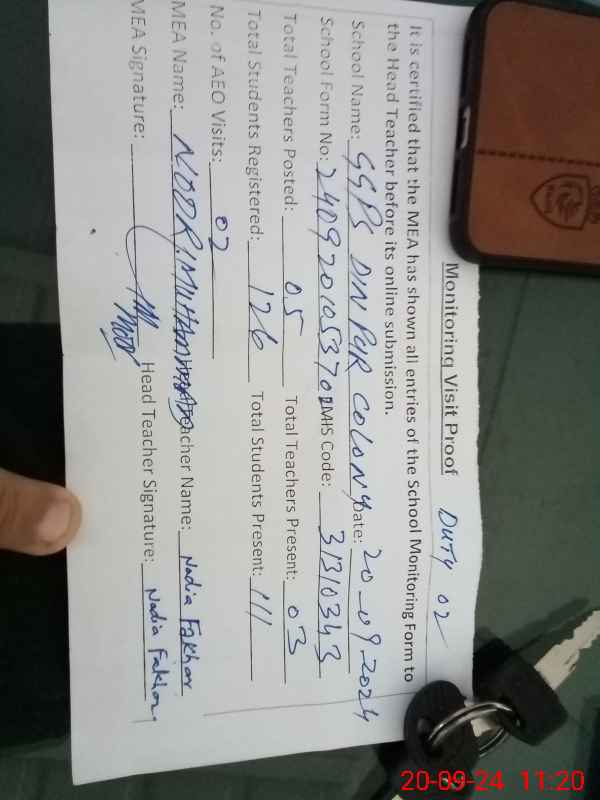 Monitoring Visit Proof DUTY 02
It is certified that the MEA has shown all entries of the School Monitoring Form to
the Head Teacher before its online submission.
School Name: GGPS DIN PUR COLONY Date: 20-09-2024
School Form No: 2409201053702 EMIS Code: 31310343
Total Teachers Posted: 05 Total Teachers Present: 03
Total Students Registered: 126 Total Students Present: 111
No. of AEO Visits: 02
MEA Name: NOOR MUHAMMAD Teacher Name: Nadia Fakhar
MEA Signature: Head Teacher Signature: Nadia Fakhar
20-09-24 11:20